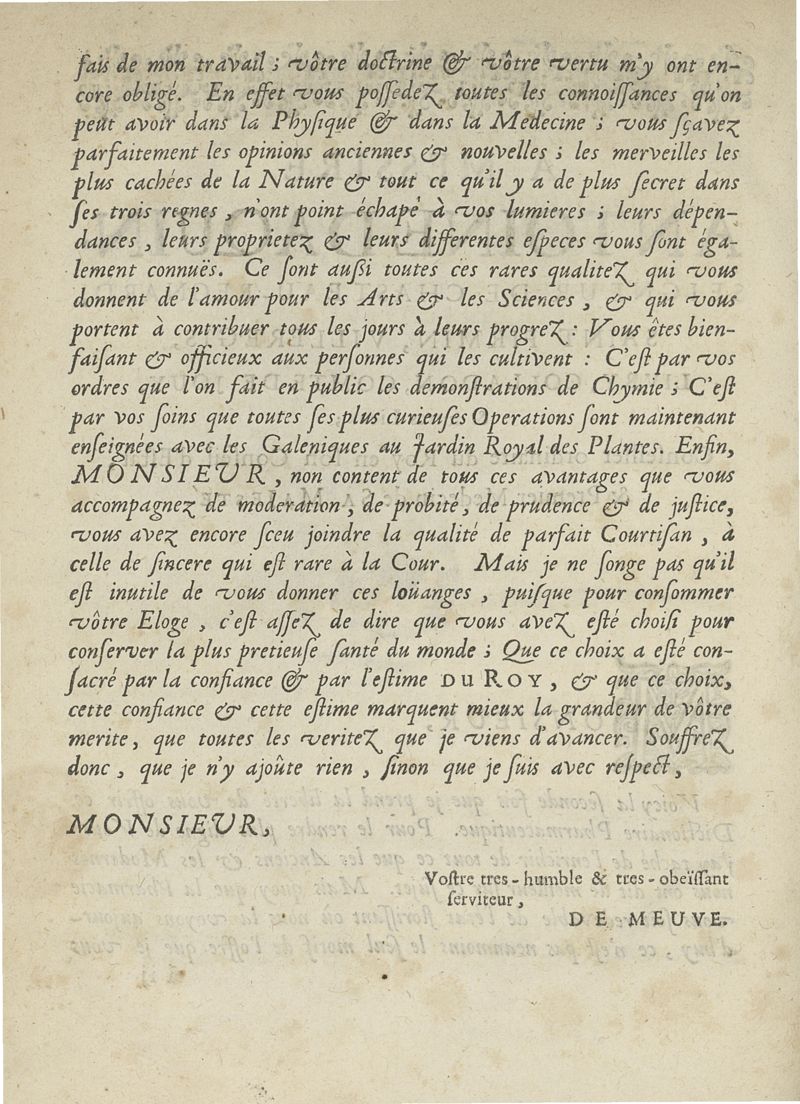 fais de mon travail ; vôtre doctrine & vôtre vertu m'y ont en-
core obligé. En effet vous poſſedez toutes les connoiſſances qu'on
peut avoir dans la Phyſique & dans la Medecine ; vous ſçavez
parfaitement les opinions anciennes & nouvelles ; les merveilles les
plus cachées de la Nature & tout ce qu'il y a de plus ſecret dans
ſes trois regnes, n'ont point échapé à vos lumieres ; leurs dépen-
dances, leurs proprietez & leurs differentes eſpeces vous ſont éga-
lement connuës. Ce ſont auſſi toutes ces rares qualitez qui vous
donnent de l'amour pour les Arts & les Sciences, & qui vous
portent à contribuer tous les jours à leurs progrez : Vous êtes bien-
faiſant & officieux aux perſonnes qui les cultivent : C'eſt par vos
ordres que l'on fait en public les demonſtrations de Chymie ; C'eſt
par vos ſoins que toutes ſes plus curieuſes Operations ſont maintenant
enſeignées avec les Galeniques au Jardin Royal des Plantes. Enfin,
MONSIEUR, non content de tous ces avantages que vous
accompagnez de moderation, de probité, de prudence & de juſtice,
vous avez encore ſceu joindre la qualité de parfait Courtiſan, à
celle de ſincere qui eſt rare à la Cour. Mais je ne ſonge pas qu'il
eſt inutile de vous donner ces loüanges, puiſque pour conſommer
vôtre Eloge, c'eſt aſſez de dire que vous avez eſté choiſi pour
conſerver la plus pretieuſe ſanté du monde ; Que ce choix a eſté con-
ſacré par la confiance & par l'eſtime DU ROY, & que ce choix,
cette confiance & cette eſtime marquent mieux la grandeur de vôtre
merite, que toutes les veritez que je viens d'avancer. Souffrez
donc, que je n'y ajoûte rien, ſinon que je ſuis avec reſpect,
MONSIEUR,
Voſtre tres-humble & tres-obeïſſant
ſerviteur,
DE MEUVE.